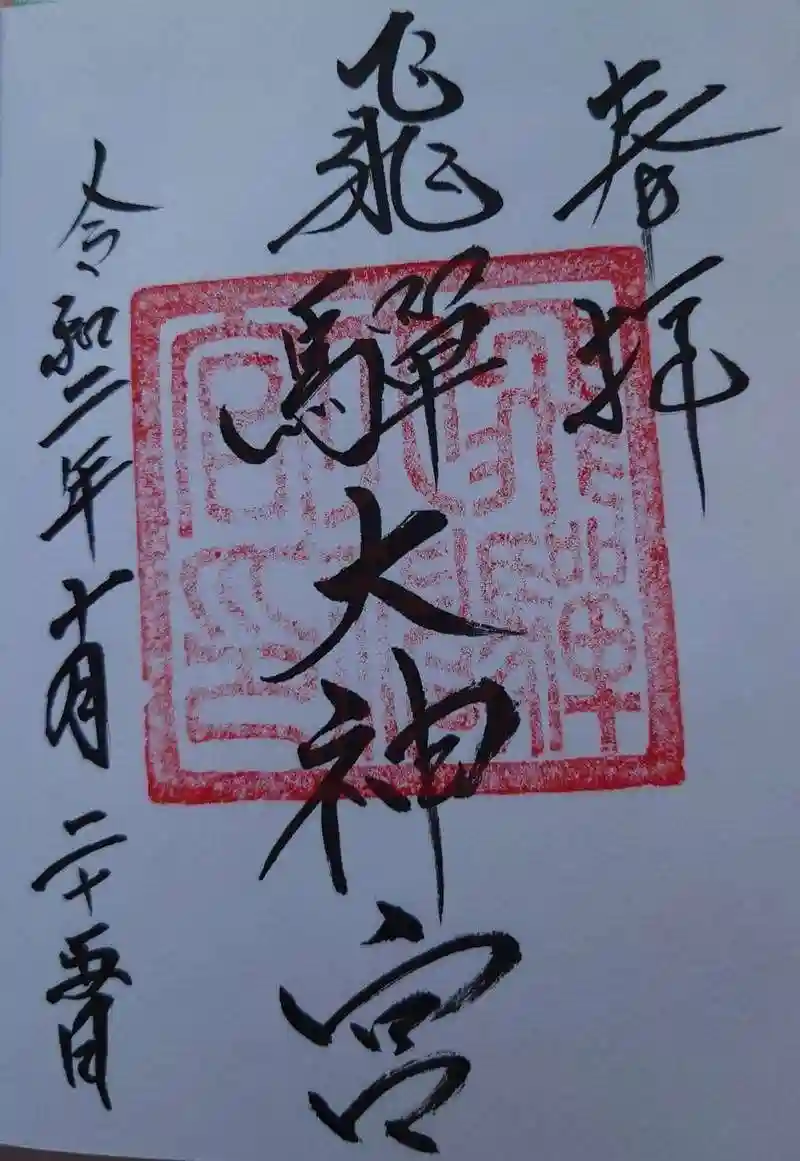 奉拝
飛驒大神宮
令和二年十月二十五日